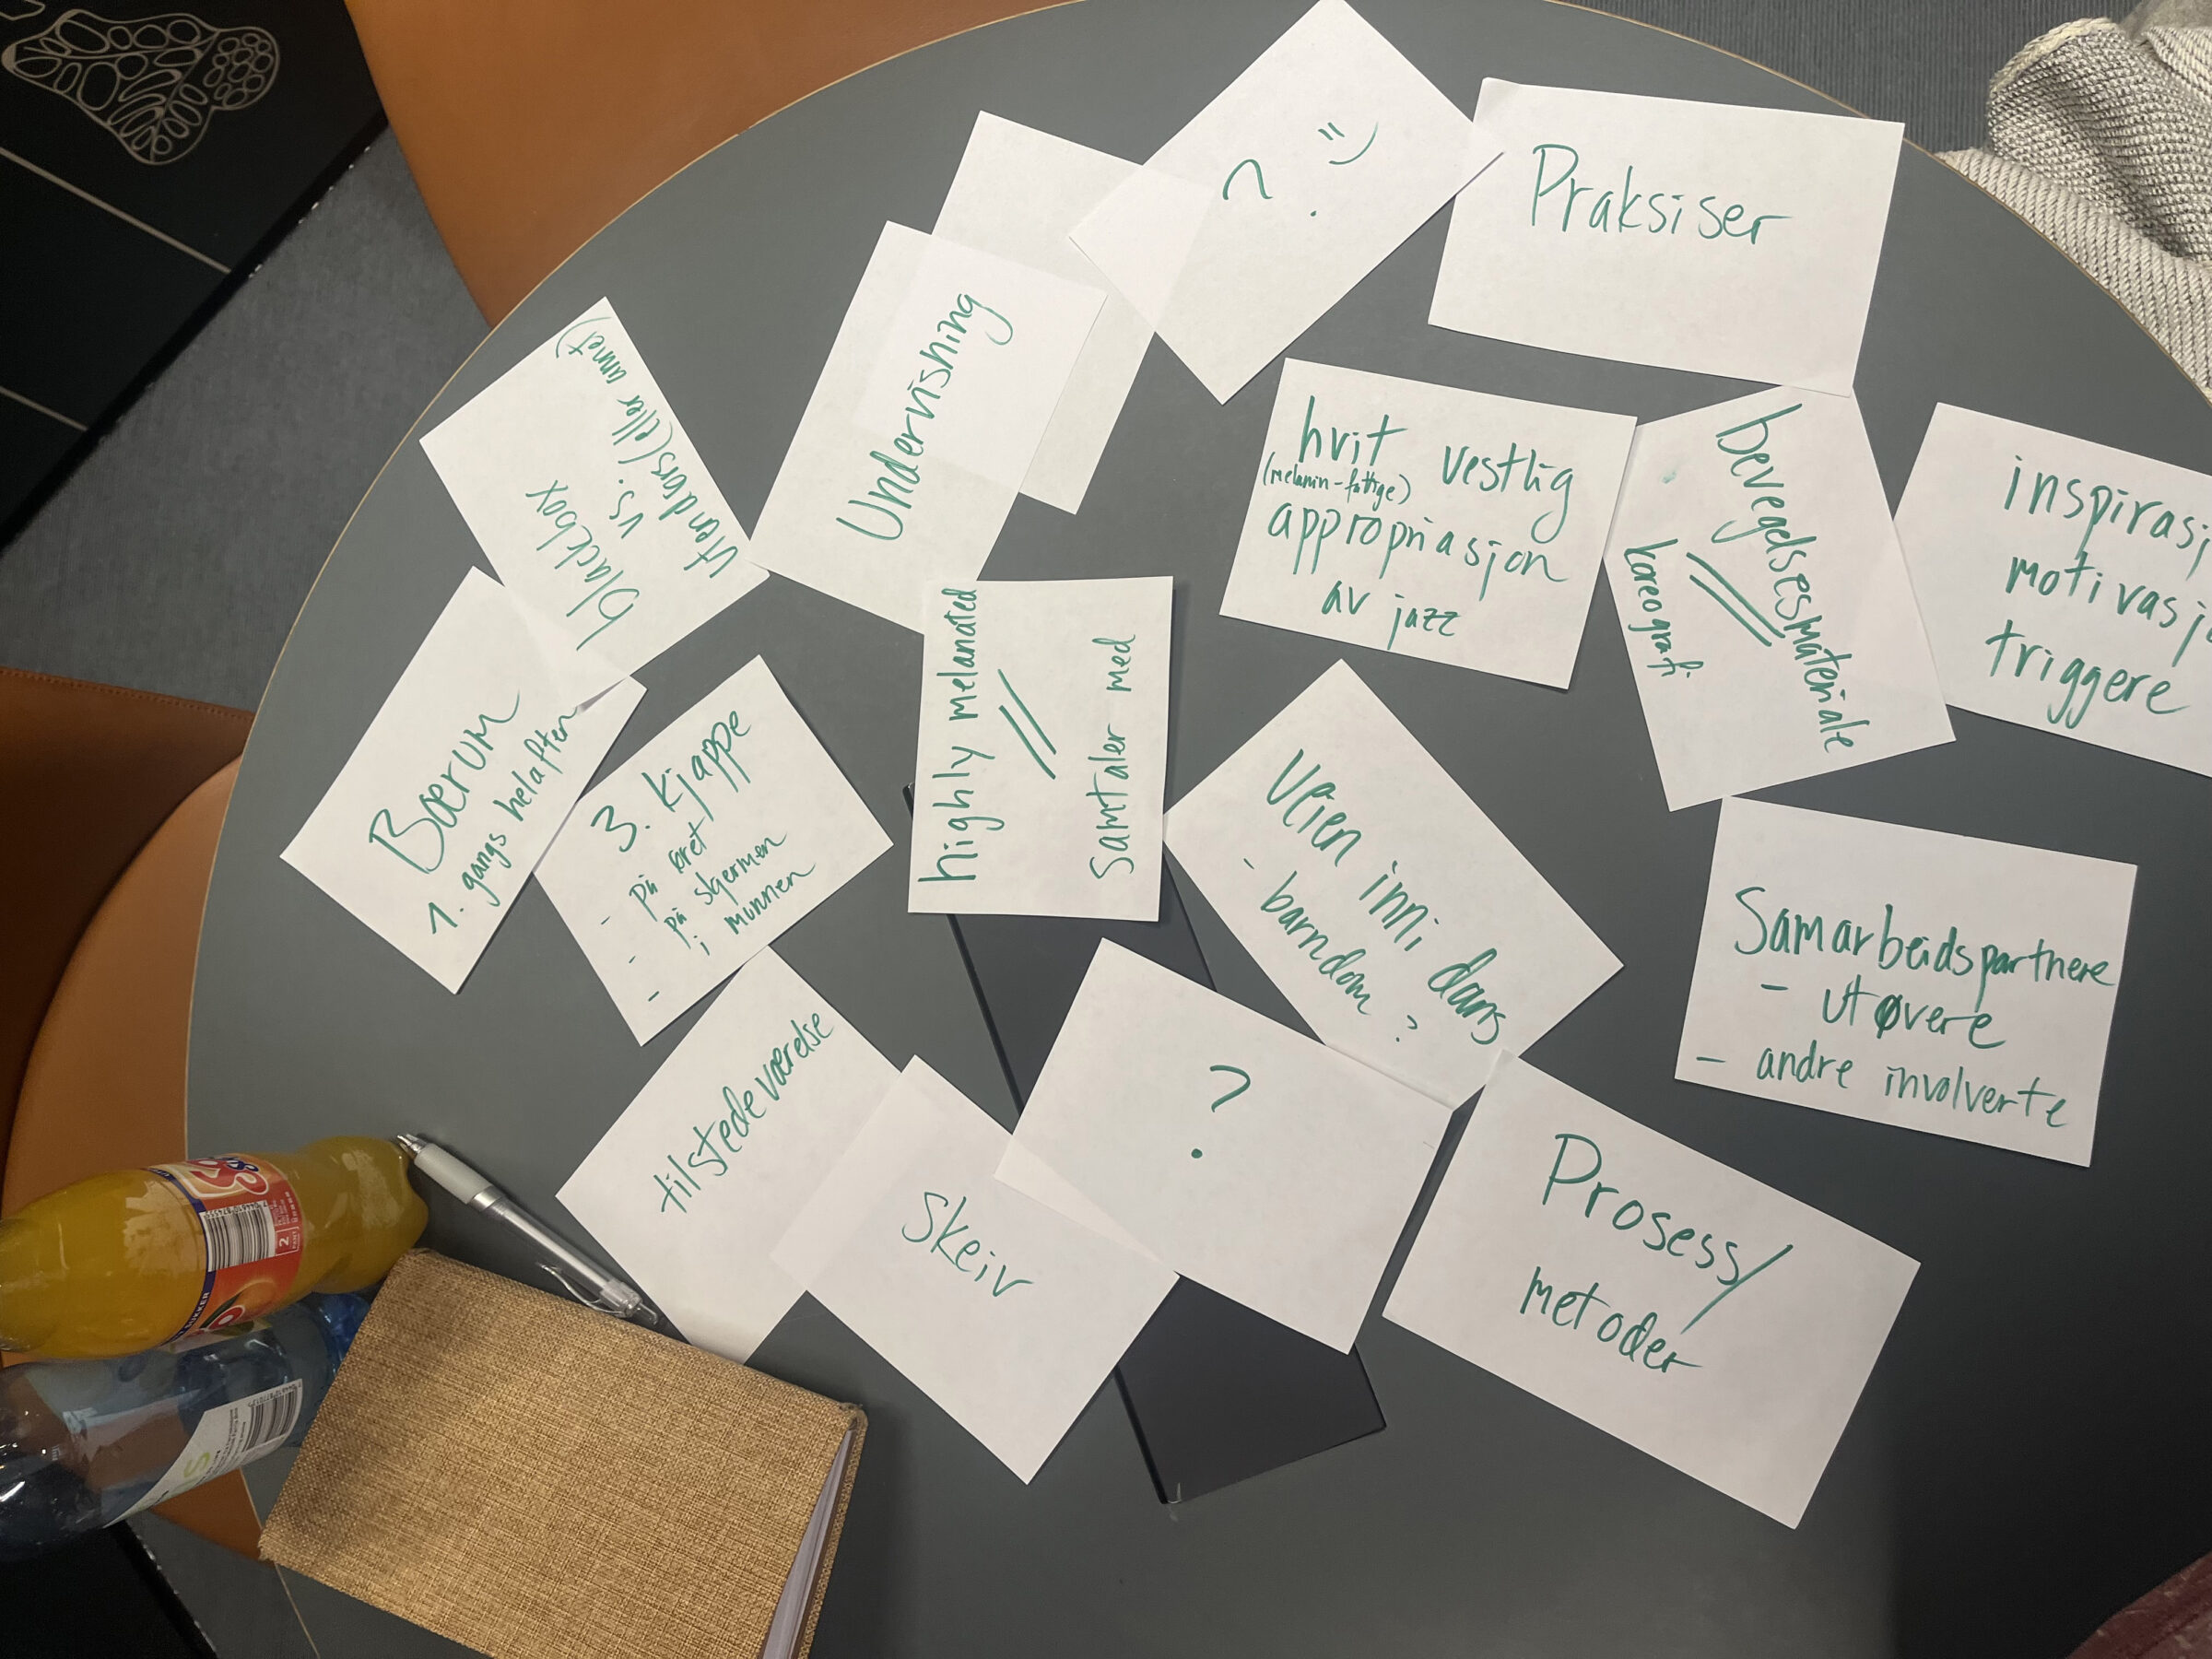 ? =)
Praksiser
Undervisning
blackbox
vs.
Utendørs (eller annet)
hvit vestlig
(melanin-fattige)
appropriasjon
av jazz
bevegelsesmateriale
//
koreografi
inspirasj
motivasj
triggere
Bærum
1. gangs helaften
3. kjappe
- på øret
- på skjermen
- i munnen
highly melanated
//
Samtaler med
Veien inn i dans
- barndom?
Samarbeidspartnere
- utøvere
- andre involverte
tilstedeværelse
Skeiv
?
Prosess/
metoder